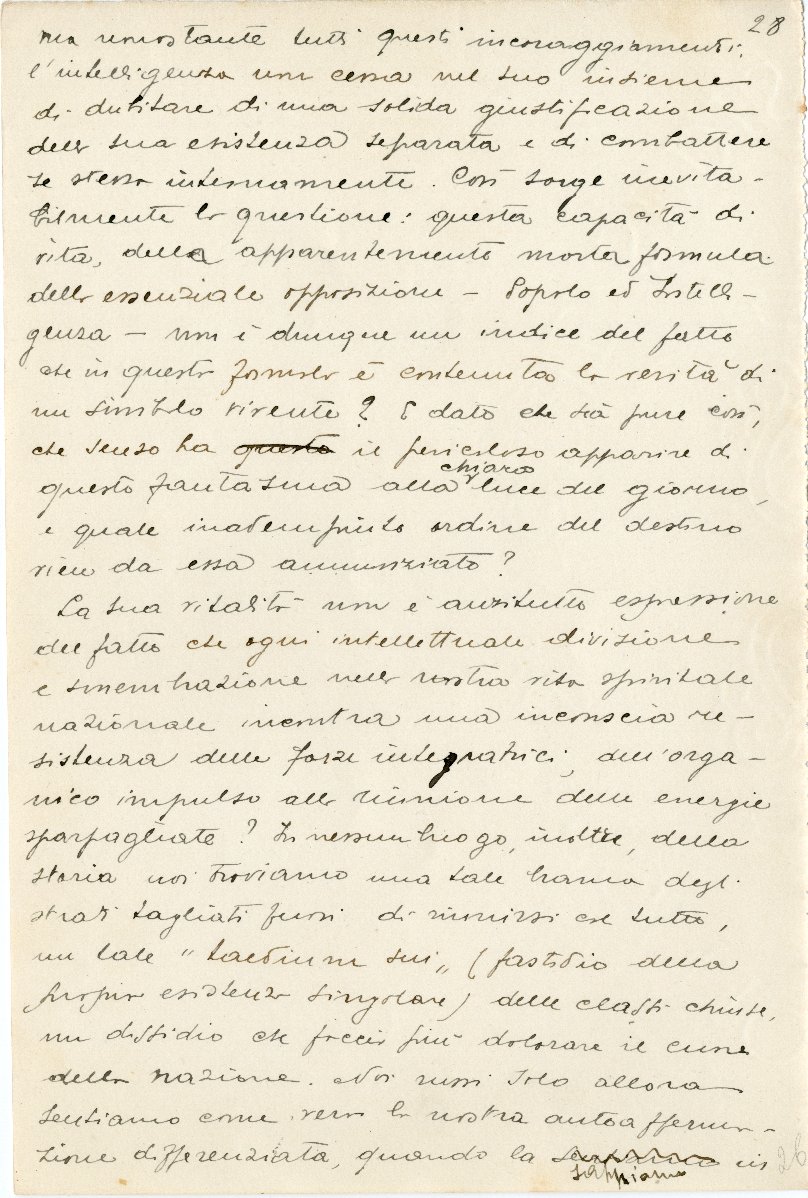 28
ma nonostante tutti questi incoraggiamenti,
l'intelligenza non cessa nel suo insieme
di dubitare di una solida giustificazione
della sua esistenza separata e di combattere
se stessa internamente. Così sorge inevita-
bilmente la questione: questa capacità di
vita, della apparentemente morta formula
della essenziale opposizione - Popolo ed Intelli-
genza - non è dunque un indice del fatto
che in questa formula è contenuta la verità di
un simbolo vivente? E dato che sia pure così,
che senso ha questo il pericoloso apparire di
questo fantasma alla chiara luce del giorno,
e quale inadempiuto ordine del destino
vien da essa annunziato?
La sua vitalità non è anzitutto espressione
del fatto che ogni intellettuale divisione
e smembrazione nella nostra vita spirituale
nazionale incontra una inconscia re-
sistenza delle forze integratrici, dell'orga-
nico impulso alla riunione delle energie
sparpagliate? In nessun luogo, inoltre, della
storia noi troviamo una tale brama degli
strati tagliati fuori di riunirsi col tutto,
un tale "taedium sui" (fastidio della
propria esistenza singolare) delle classi chiuse,
un dissidio che faccia più dolorare il cuore
della nazione. Noi russi solo allora
sentiamo come vera la nostra autoafferma-
zione differenziata, quando la sappiamo in
26